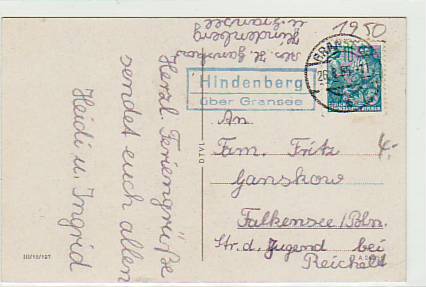 1950
Abs. H. Ganskow
Hindenberg
ü. Gransee
Hindenberg
über Gransee
Herzl. Feriengrüße
sendet euch allen
Heidi u. Ingrid
An
Fam. Fritz
Ganskow
Falkensee/Bln.
Str. d. Jugend bei
Reichelt
4,-
III/18/197